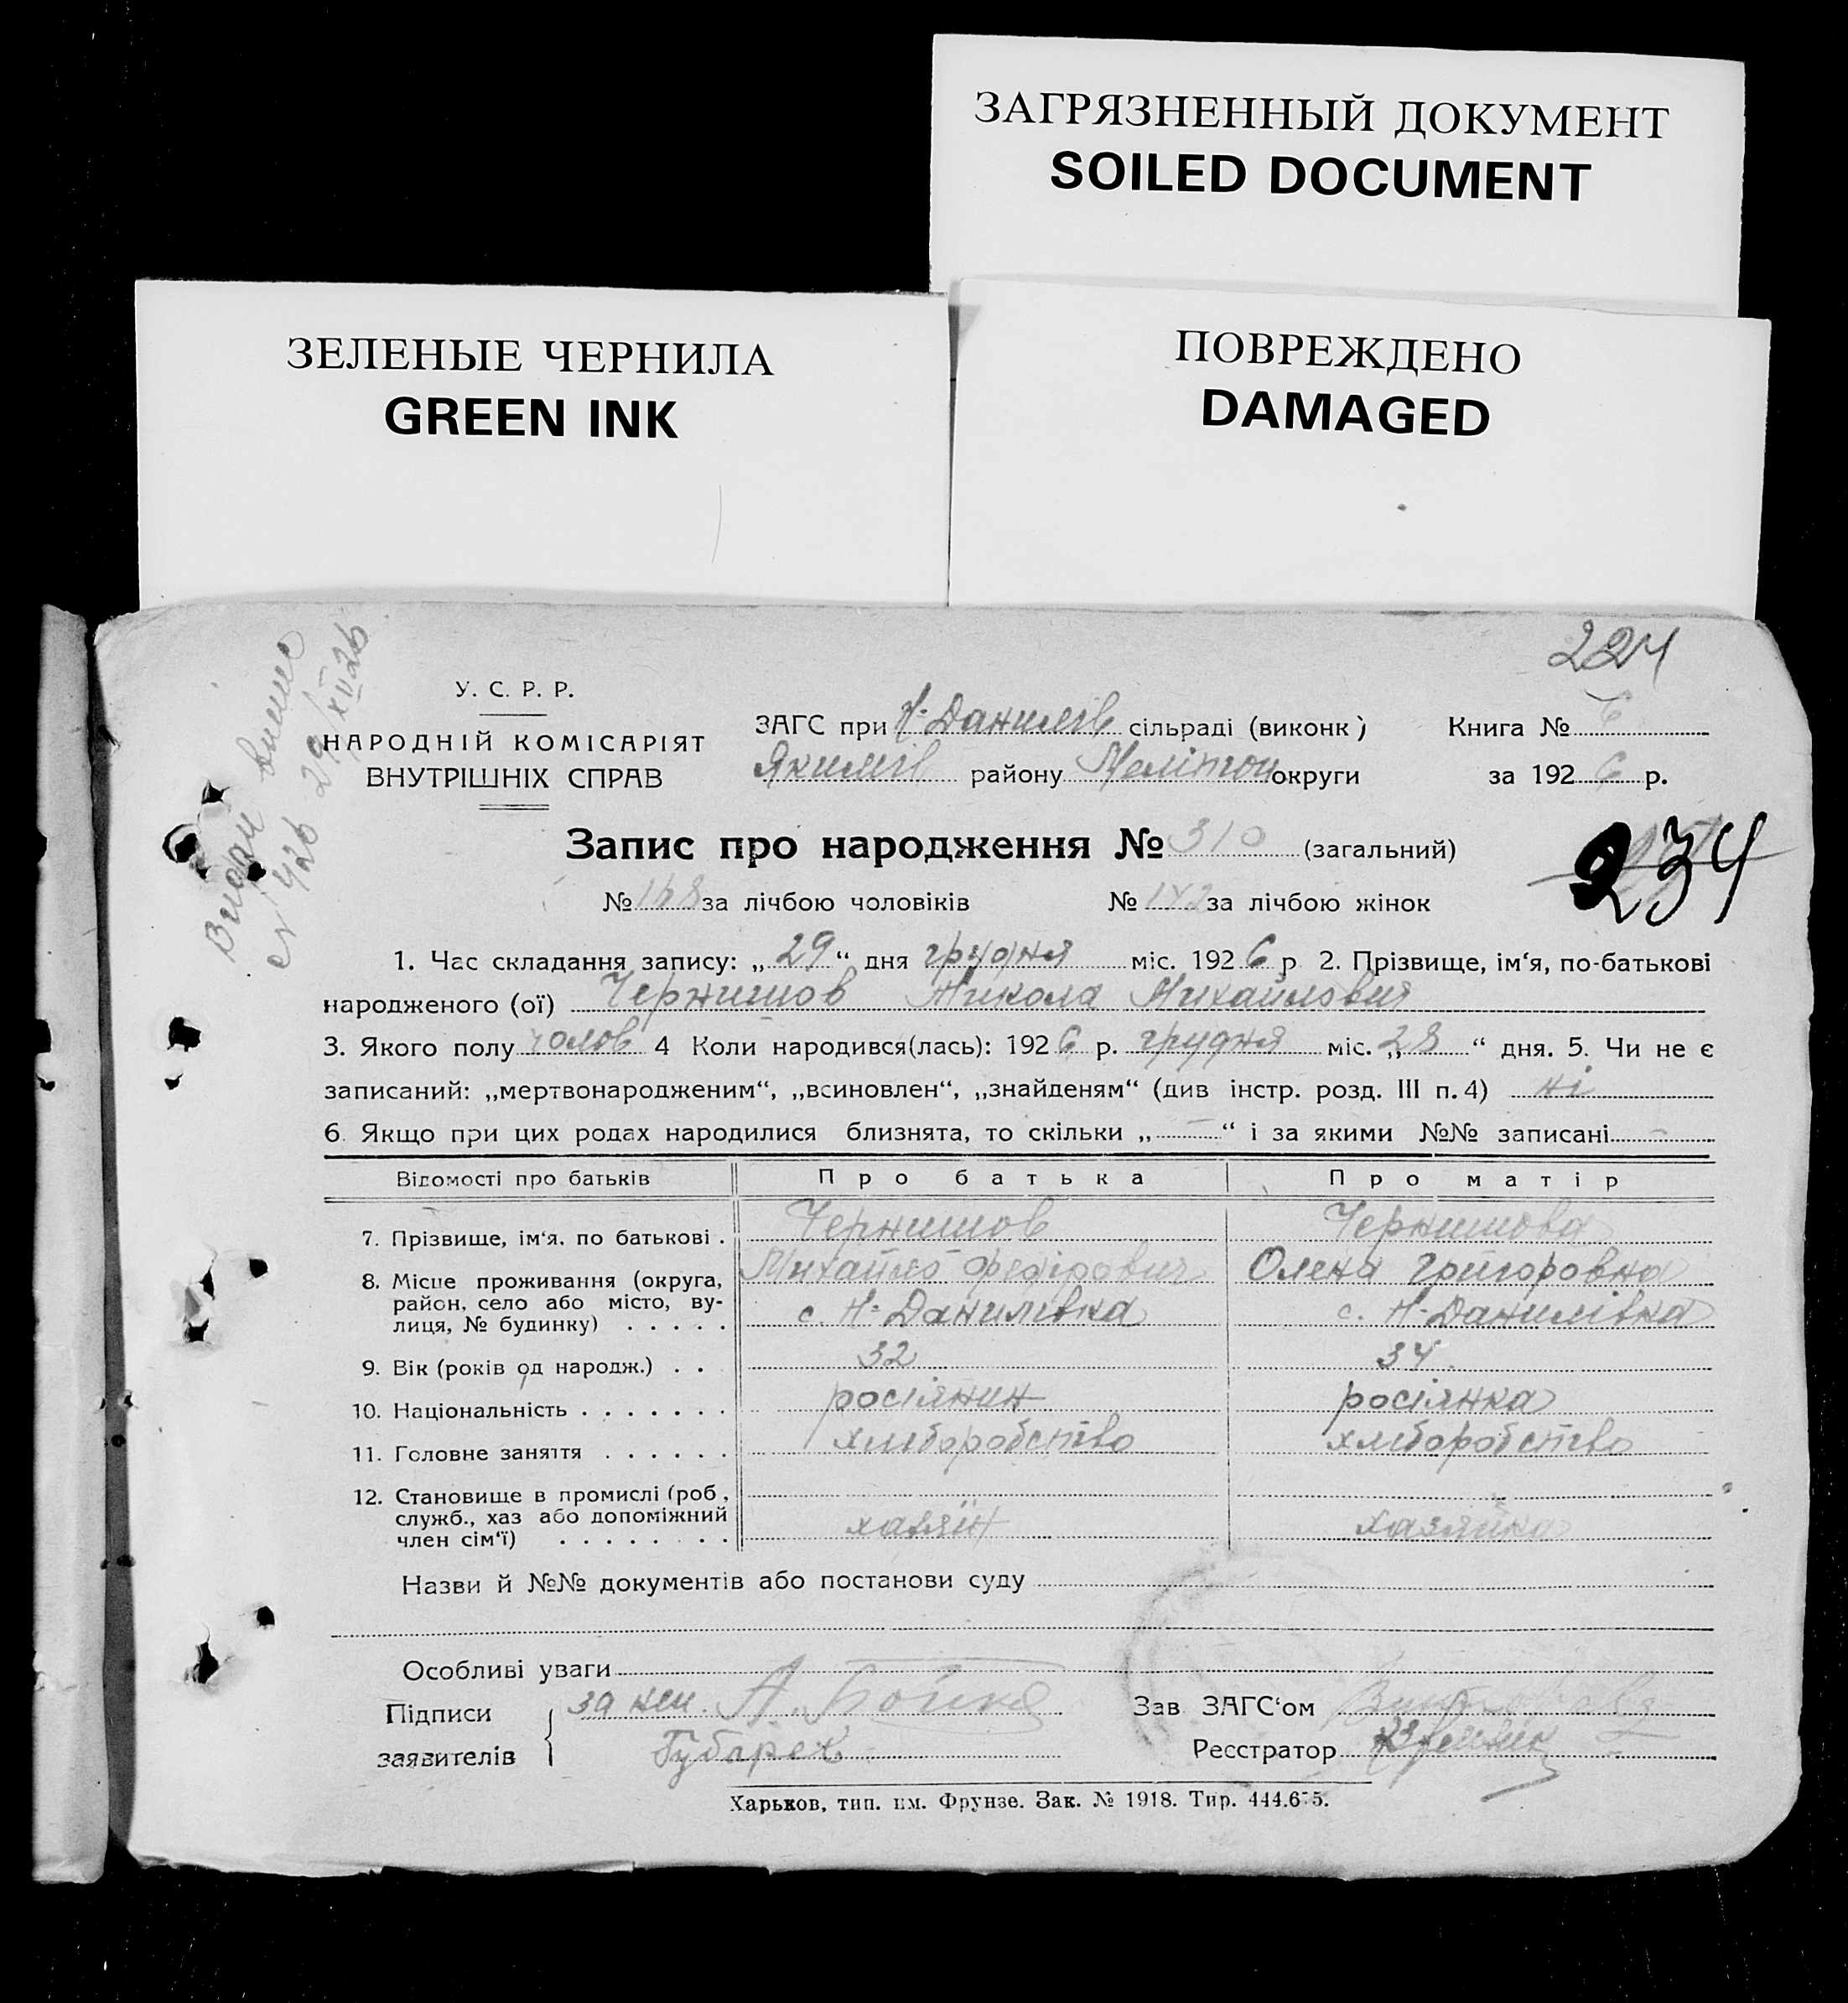 ЗАГРЯЗНЕННЫЙ ДОКУМЕНТ
SOILED DOCUMENT
ЗЕЛЕНЫЕ ЧЕРНИЛА
GREEN INK
ПОВРЕЖДЕНО
DAMAGED
224
Видан випис
№ 426 29/XII 26
У. С. Р. Р.
НАРОДНІЙ КОМІСАРІЯТ
ВНУТРІШНІХ СПРАВ
ЗАГС при Н-Данилів сільраді (виконк) Книга №
Якимів району Мелітоп округи за 1926 р.
Запис про народження № 310 (загальний)
234
№ 168 за лічбою чоловіків № 142 за лічбою жінок
1. Час складання запису: „29“ дня грудня міс. 1926 р 2. Прізвище, ім‘я, по-батькові
народженого (ої) Чернишов Микола Михайлович
3. Якого полу чолов 4 Коли народився(лась): 1926 р. грудня міс. „28“ дня. 5. Чи не є
записаний: „мертвонародженим“, „всиновлен“, „знайденям“ (див інстр. розд. III п. 4) ні
6. Якщо при цих родах народилися близнята, то скільки „—“ і за якими №№ записані —
Відомості про батьків Про батька Про матір
7. Прізвище, ім‘я. по батькові . Чернишов Чернишова
Михайло Федірович Олена Григоровна
8. Місце проживання (округа, район, село або місто, ву-
лиця, № будинку) . . . . . с. Н-Данилівка с. Н-Данилівка
9. Вік (років од народж.) . . 32 34
10. Національність . . . . . . . росіянин росіянка
11. Головне заняття . . . . . . хліборобство хліборобство
12. Становище в промислі (роб.,
служб., хаз або допоміжний
член сім‘ї) . . . . . . . . хазяїн хазяйка
Назви й №№ документів або постанови суду
Особливі уваги
Підписи за неп. А. Бойко Зав ЗАГС‘ом
заявителів Губарєв Реєстратор
Харьков, тип. им. Фрунзе. Зак. № 1918. Тир. 444.675.